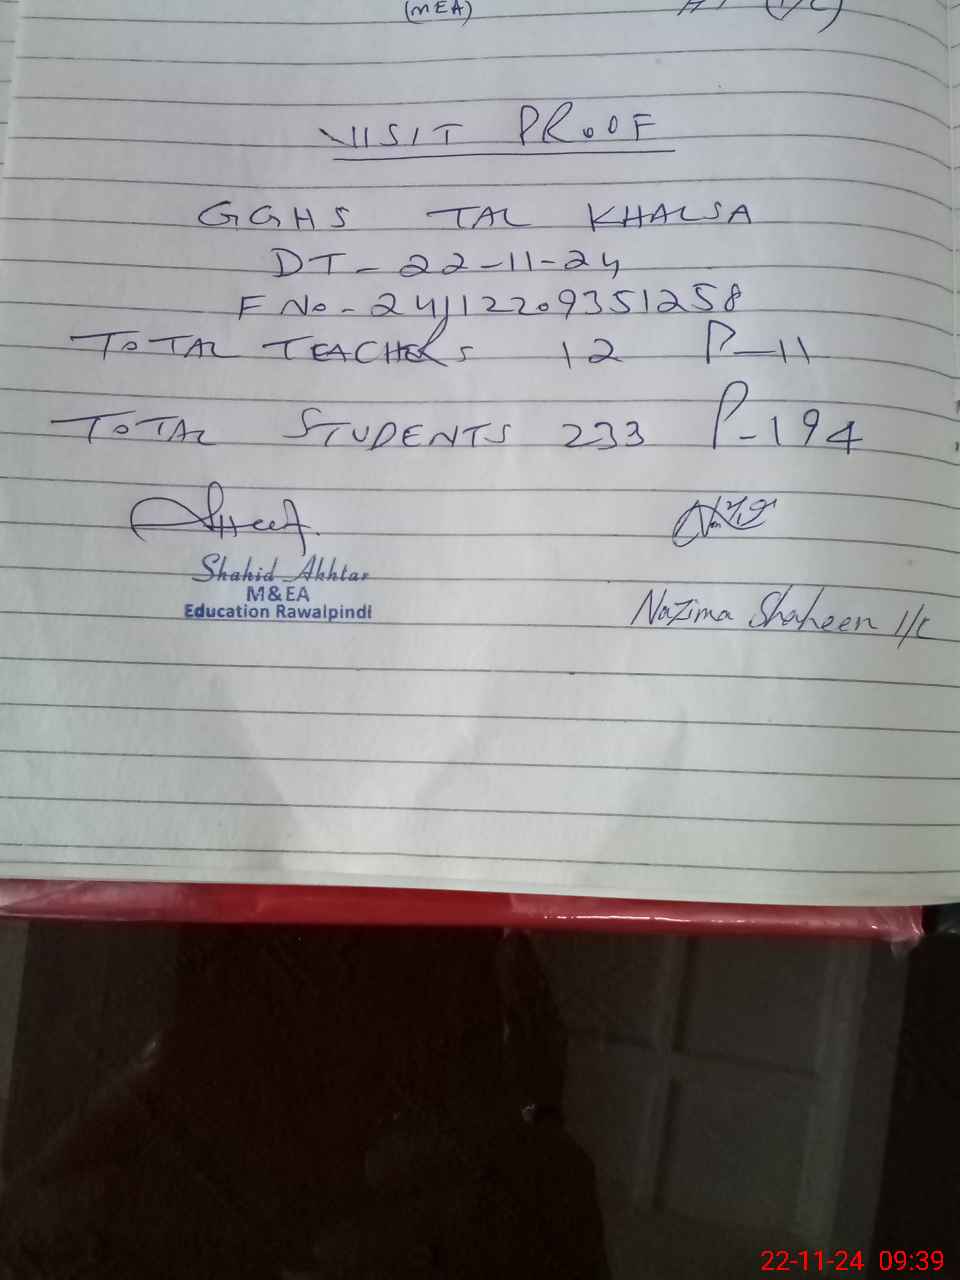 (MEA)
VISIT PROOF
GGHS TAL KHALSA
DT - 22-11-24
F No - 24112209351258
TOTAL TEACHERS 12 P-11
TOTAL STUDENTS 233 P-194
Shahid Akhtar
M&EA
Education Rawalpindi
Nazima Shaheen I/C
22-11-24 09:39